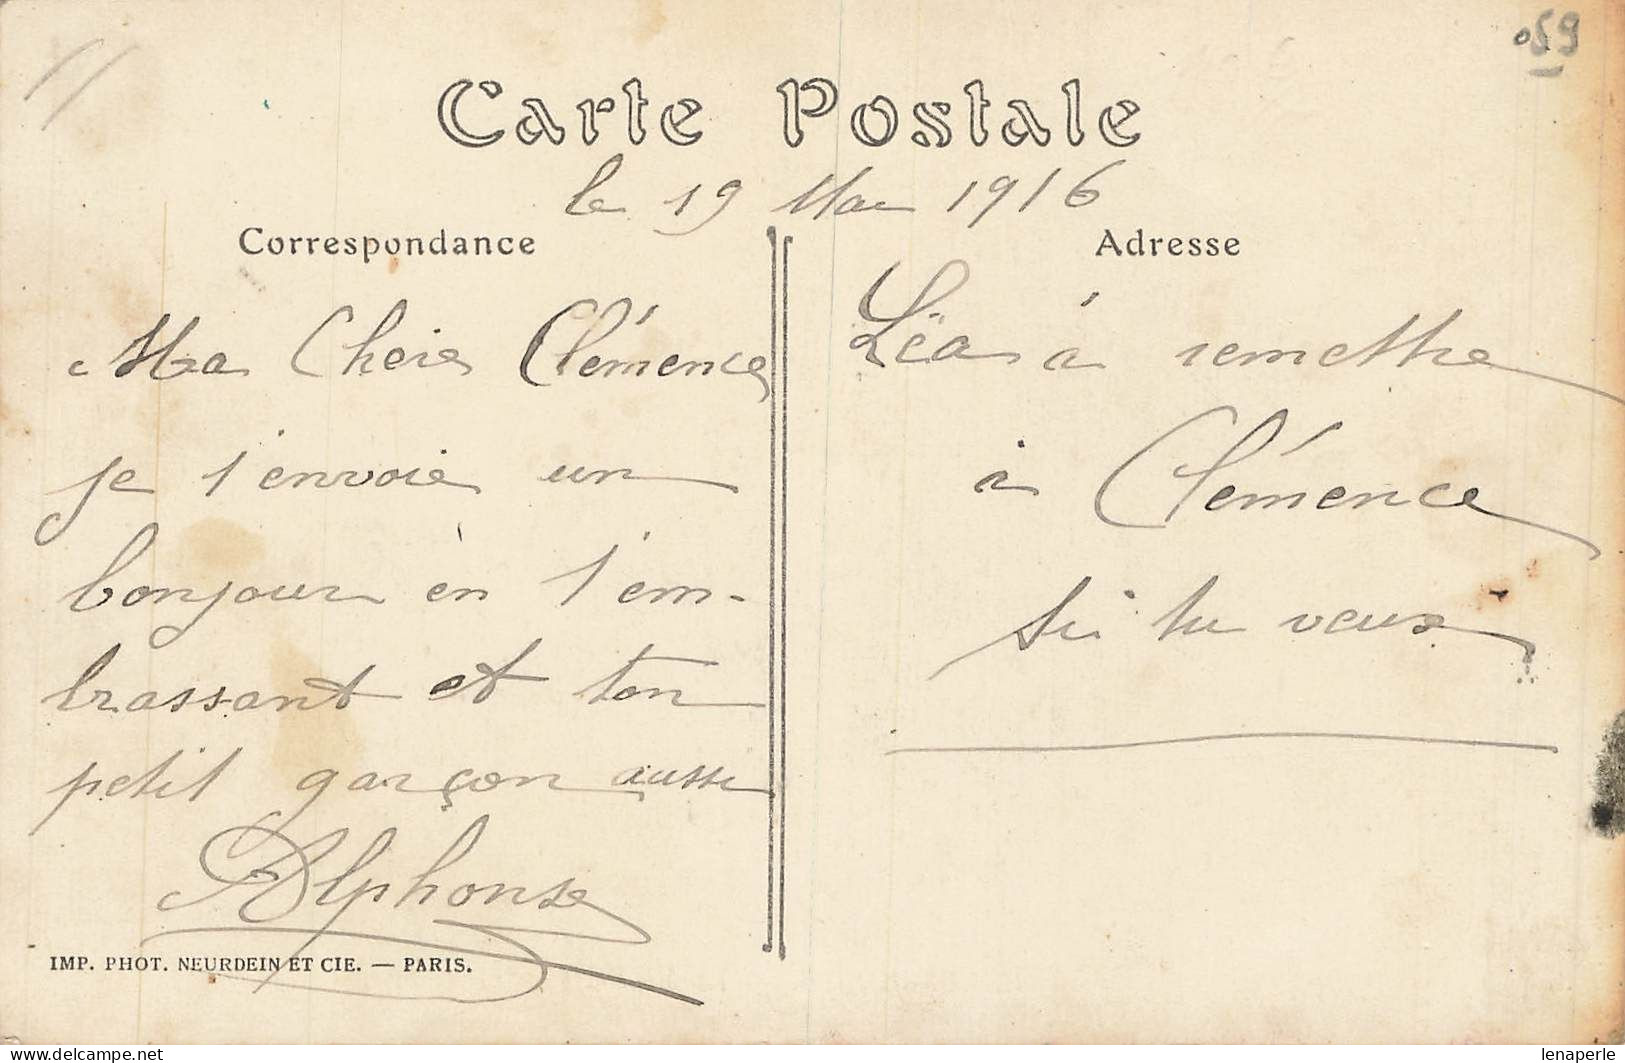 059
Carte Postale
le 19 Mai 1916
Correspondance
Ma Chere Clémence
je t'envoie un
bonjour en t'em-
brassant et ton
petit garçon aussi
Alphonse
IMP. PHOT. NEURDEIN ET CIE. — PARIS.
Adresse
Léa à remettre
à Clémence
si tu veux
lenaperle